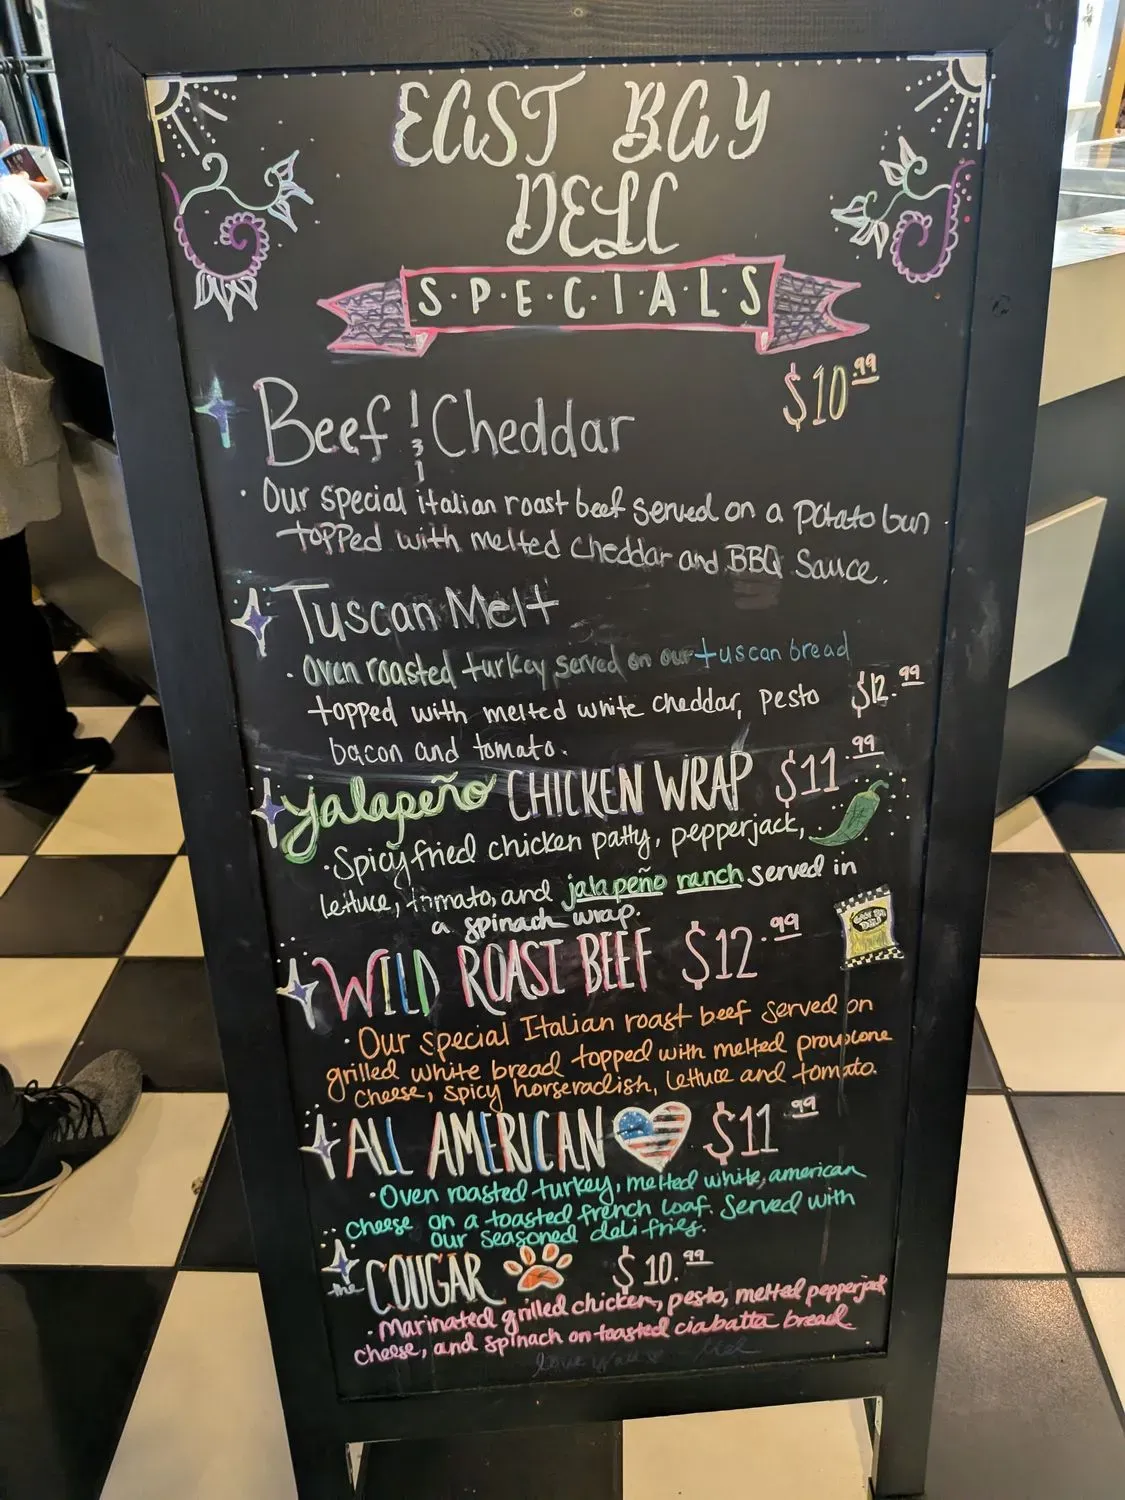 EAST BAY
DELI
S·P·E·C·I·A·L·S
$10.99
Beef & Cheddar
· Our special italian roast beef served on a potato bun
topped with melted cheddar and BBQ Sauce.
Tuscan Melt
· Oven roasted turkey served on our tuscan bread
topped with melted white cheddar, pesto $12.99
bacon and tomato.
jalapeño CHICKEN WRAP $11.99
· Spicy fried chicken patty, pepperjack,
lettuce, tomato, and jalapeño ranch served in
a spinach wrap.
WILD ROAST BEEF $12.99
· Our special Italian roast beef served on
grilled white bread topped with melted provolone
cheese, spicy horseradish, lettuce and tomato.
ALL AMERICAN $11.99
· Oven roasted turkey, melted white, american
cheese on a toasted french loaf. Served with
our seasoned deli fries.
the COUGAR $10.99
· Marinated grilled chicken, pesto, melted pepperjack
cheese, and spinach on toasted ciabatta bread